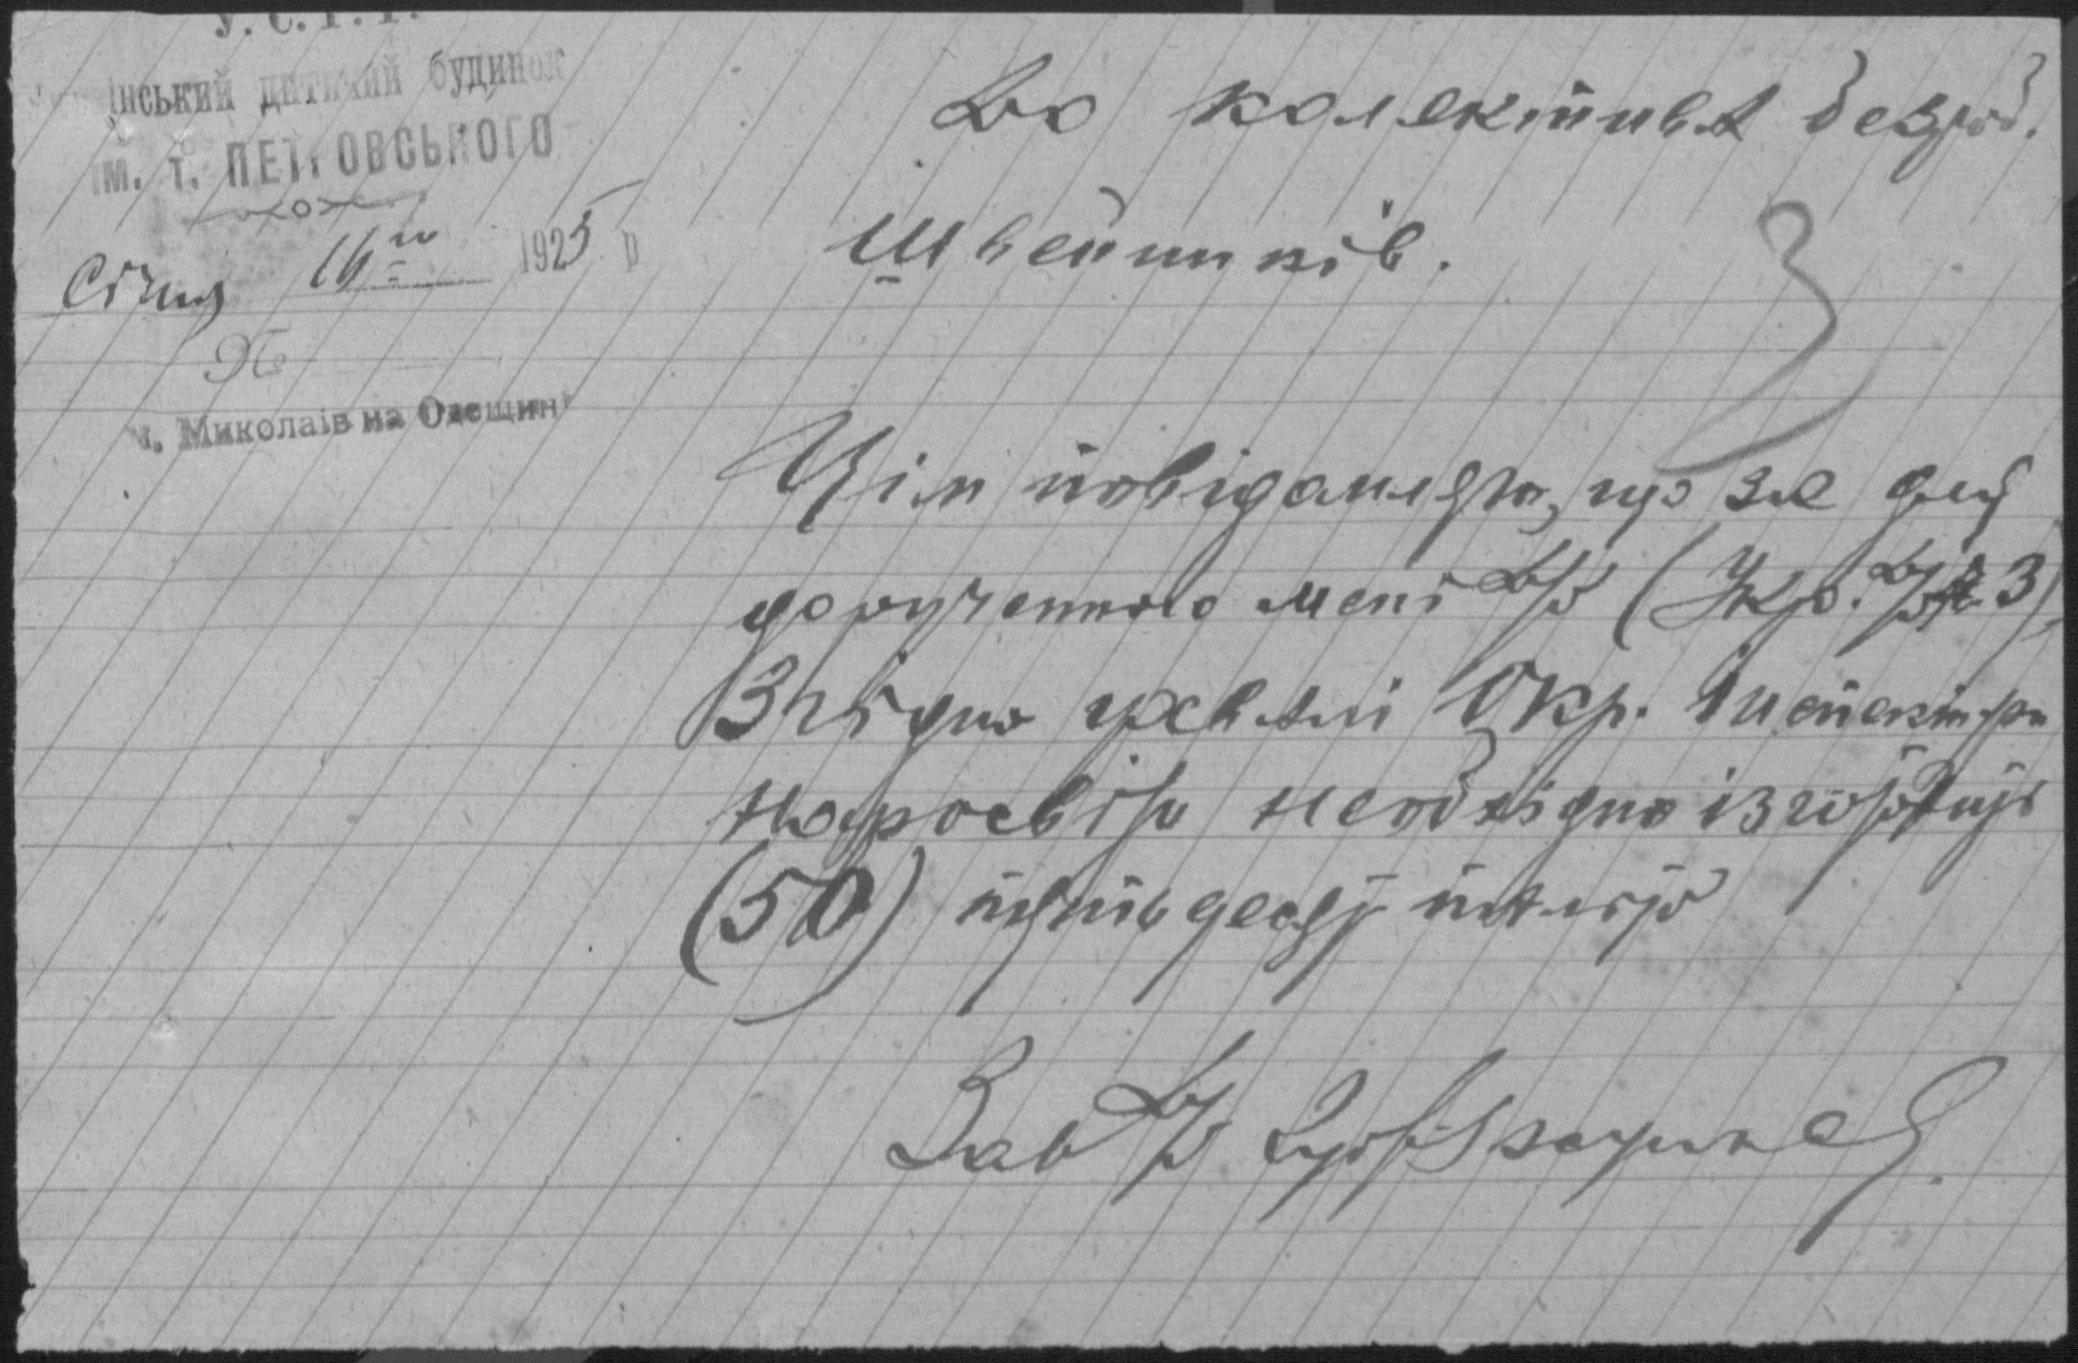 У. С. Р. Р.
Український дитячий будинок
ім. т. ПЕТРОВСЬКОГО
Січня 16го 1925 р
№
м. Миколаів на Одещині
До колективА безроб.
Швейників.
3
Цім повідомляю, що за для
дорученного мені Д/б (Укр. Д/б № 3)
Згідно Окр. Інспектури
Наросвіти необхідно
(50) пятьдесят пальто
Зав Д/б